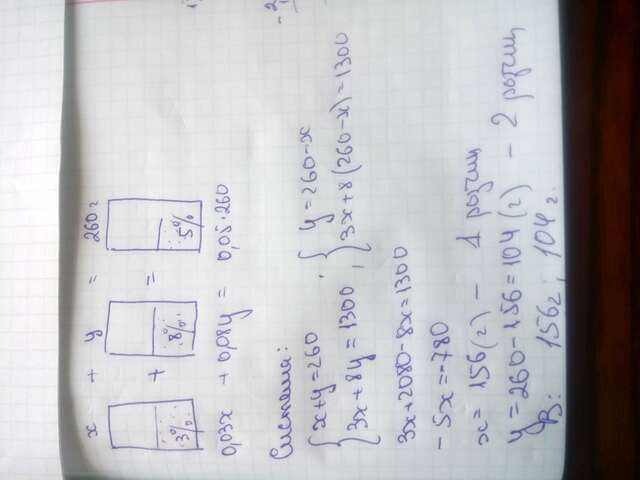 x + y = 260г
3% + 8% = 5%
0,03x + 0,08y = 0,05·260
Система:
{ x+y=260 3x+8y=1300 ; { y=260-x 3x+8(260-x)=1300
3x+2080-8x=1300
-5x=-780
x=156(г) - 1 розчин
y=260-156=104(г) - 2 розчин
В: 156г; 104г.